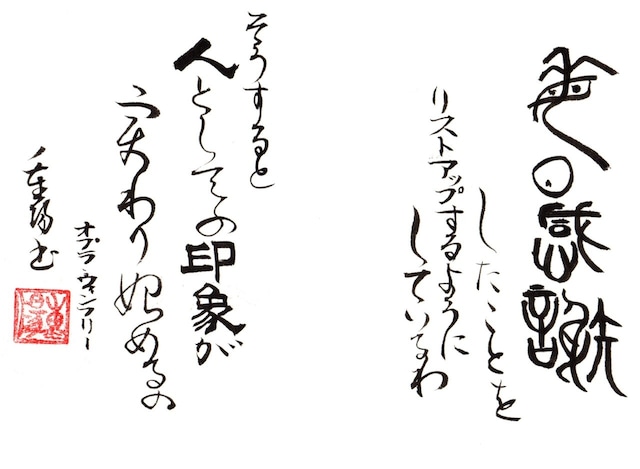 毎日感謝
したことを
リストアップするように
しているわ
そうすると
人としての印象が
変わり始めるの
オプラ・ウィンフリー
書